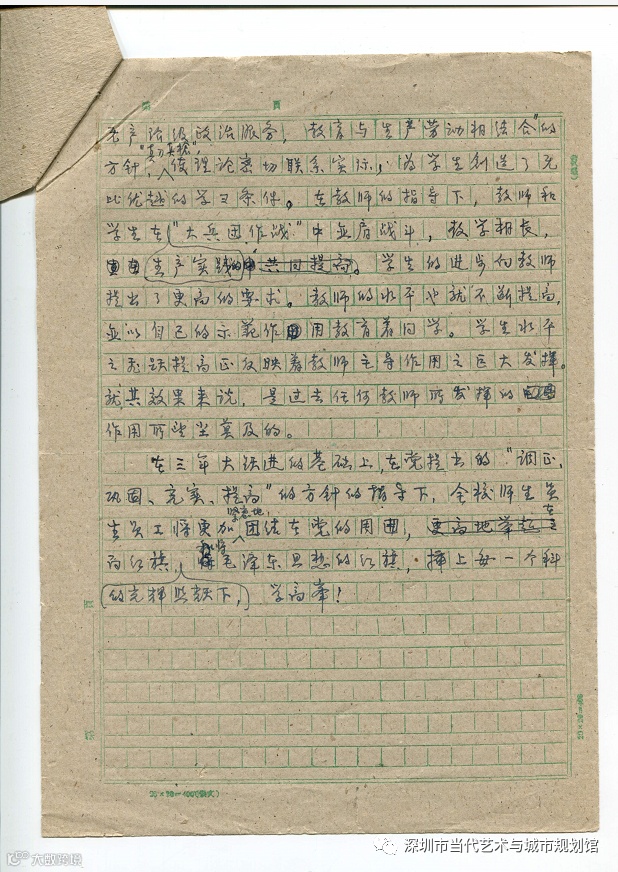 无产阶级政治服务，教育与生产劳动相结合"的
"真刀真枪"，
方针，使理论密切联系实际，为学生创造了无
比优越的学习条件。在教师的指导下，教师和
学生在"大兵团作战"中並肩战斗，教学相长，
生产实践的 共同提高。学生的进步向教师
提出了更高的要求。教师的水平也就不断提高，
並以自己的示范作用教育着同学。学生水平
之飞跃提高正反映着教师主导作用之巨大发挥。
就其效果来说，是过去任何教师所发挥的
作用所望尘莫及的。
在三年大跃进的基础上，在党提出的"调正、
巩固、充实、提高"的方针的指导下，全校师生员
紧密地
生员工将更加团结在党的周围，更高地举起在
而红旗，毛泽东思想的红旗，插上每一个科
的光辉照耀下，学高峯！
20×20=400
深圳市当代艺术与城市规划馆
大数跨境